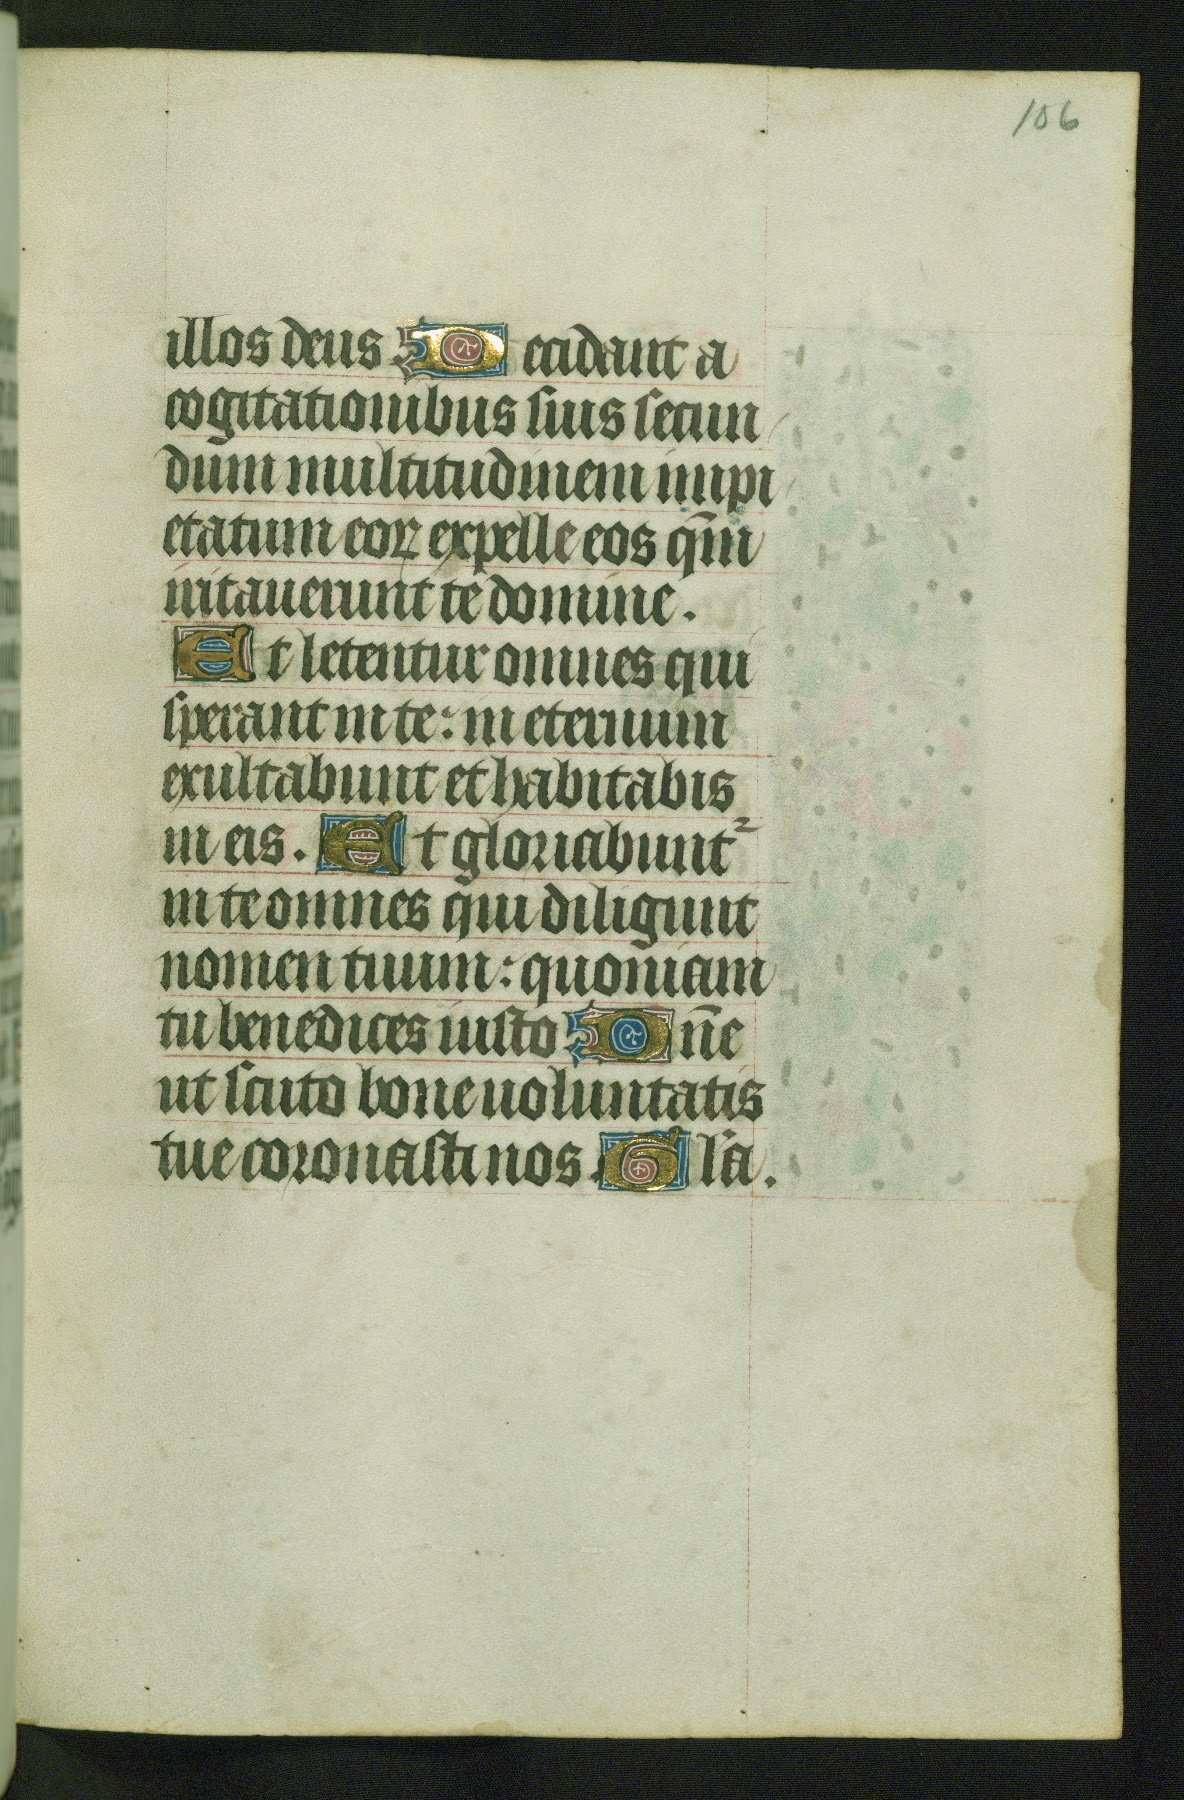 106
illos deus . Decidant a
cogitationibus suis secun
dum multitudinem impi
etatum eoꝝ expelle eos qm̄
irritauerunt te domine .
Et letentur omnes qui
sperant in te : in eternum
exultabunt et habitabis
in eis . Et gloriabunt²
in te omnes qui diligunt
nomen tuum : quoniam
tu benedices iusto Dn̄e
ut scuto bone uoluntatis
tue coronasti nos . Gla .